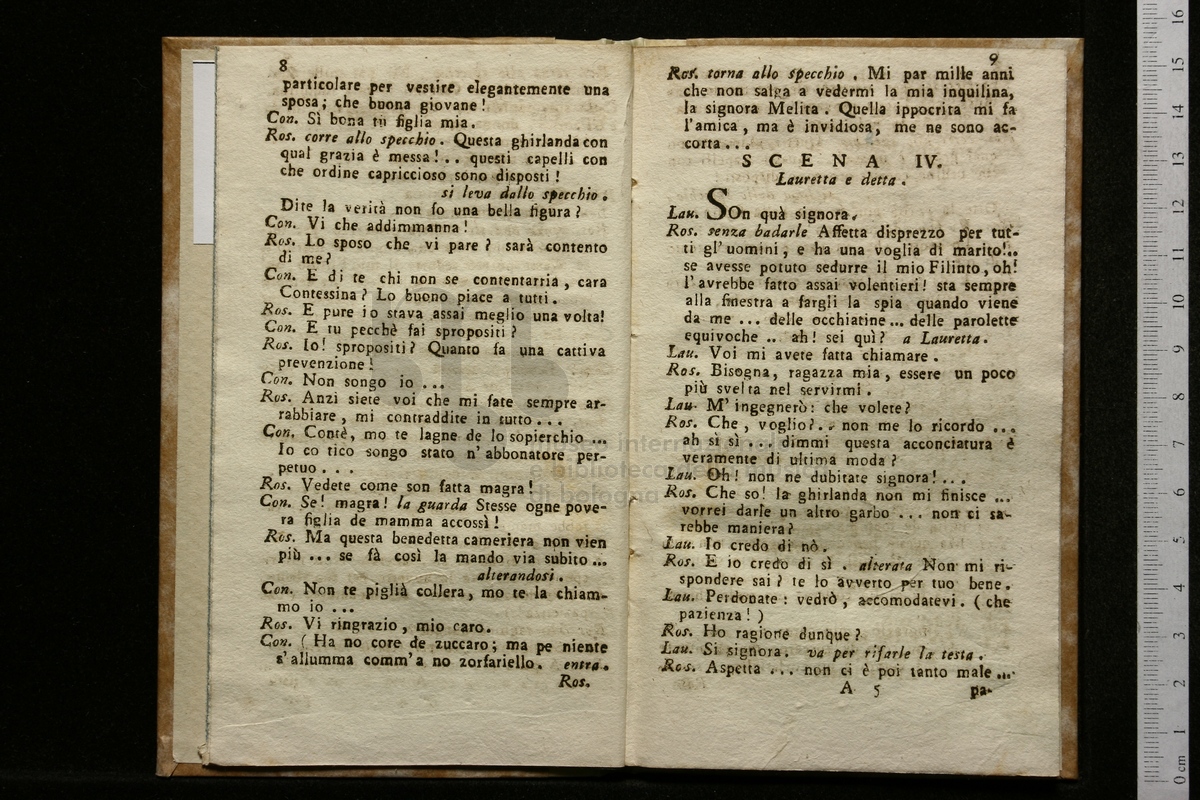 8
particolare per vestire elegantemente una
sposa; che buona giovane!
Con. Sì bona tu figlia mia.
Ros. corre allo specchio. Questa ghirlanda con
qual grazia è messa!.. questi capelli con
che ordine capriccioso sono disposti!
si leva dallo specchio.
Dite la verità non fo una bella figura?
Con. Vi che addimmanna!
Ros. Lo sposo che vi pare? sarà contento
di me?
Con. E di te chi non se contentarria, cara
Contessina? Lo buono piace a tutti.
Ros. E pure io stava assai meglio una volta!
Con. E tu pecchè fai spropositi?
Ros. Io! spropositi? Quanto fa una cattiva
prevenzione!
Con. Non songo io ...
Ros. Anzi siete voi che mi fate sempre ar-
rabbiare, mi contraddite in tutto...
Con. Contè, mo te lagne de lo sopierchio ...
Io co tico songo stato n'abbonatore per-
petuo...
Ros. Vedete come son fatta magra!
Con. Se! magra! la guarda Stesse ogne pove-
ra figlia de mamma accossì!
Ros. Ma questa benedetta cameriera non vien
più ... se fà così la mando via subito ...
alterandosi.
Con. Non te piglià collera, mo te la chiam-
mo io ...
Ros. Vi ringrazio, mio caro.
Con. (Ha no core de zuccaro; ma pe niente
s'allumma comm'a no zorfariello. entra.
Ros.
9
Ros. torna allo specchio. Mi par mille anni
che non salga a vedermi la mia inquilina,
la signora Melita. Quella ippocrita mi fa
l'amica, ma è invidiosa, me ne sono ac-
corta...
SCENA IV.
Lauretta e detta.
Lau. SOn quà signora.
Ros. senza badarle Affetta disprezzo per tut-
ti gl'uomini, e ha una voglia di marito!..
se avesse potuto sedurre il mio Filinto, oh!
l'avrebbe fatto assai volentieri! sta sempre
alla finestra a fargli la spia quando viene
da me ... delle occhiatine... delle parolette
equivoche .. ah! sei quì? a Lauretta.
Lau. Voi mi avete fatta chiamare.
Ros. Bisogna, ragazza mia, essere un poco
più svelta nel servirmi.
Lau. M'ingegnerò: che volete?
Ros. Che, voglio?.. non me lo ricordo ...
ah sì sì ... dimmi questa acconciatura è
veramente di ultima moda?
Lau. Oh! non ne dubitate signora!...
Ros. Che so! la ghirlanda non mi finisce ...
vorrei darle un altro garbo ... non ci sa-
rebbe maniera?
Lau. Io credo di nò.
Ros. E io credo di sì. alterata Non mi ri-
spondere sai? te lo avverto per tuo bene.
Lau. Perdonate: vedrò, accomodatevi. (che
pazienza!)
Ros. Ho ragione dunque?
Lau. Si signora. va per rifarle la testa.
Ros. Aspetta ... non ci è poi tanto male ...
A 5
pa-